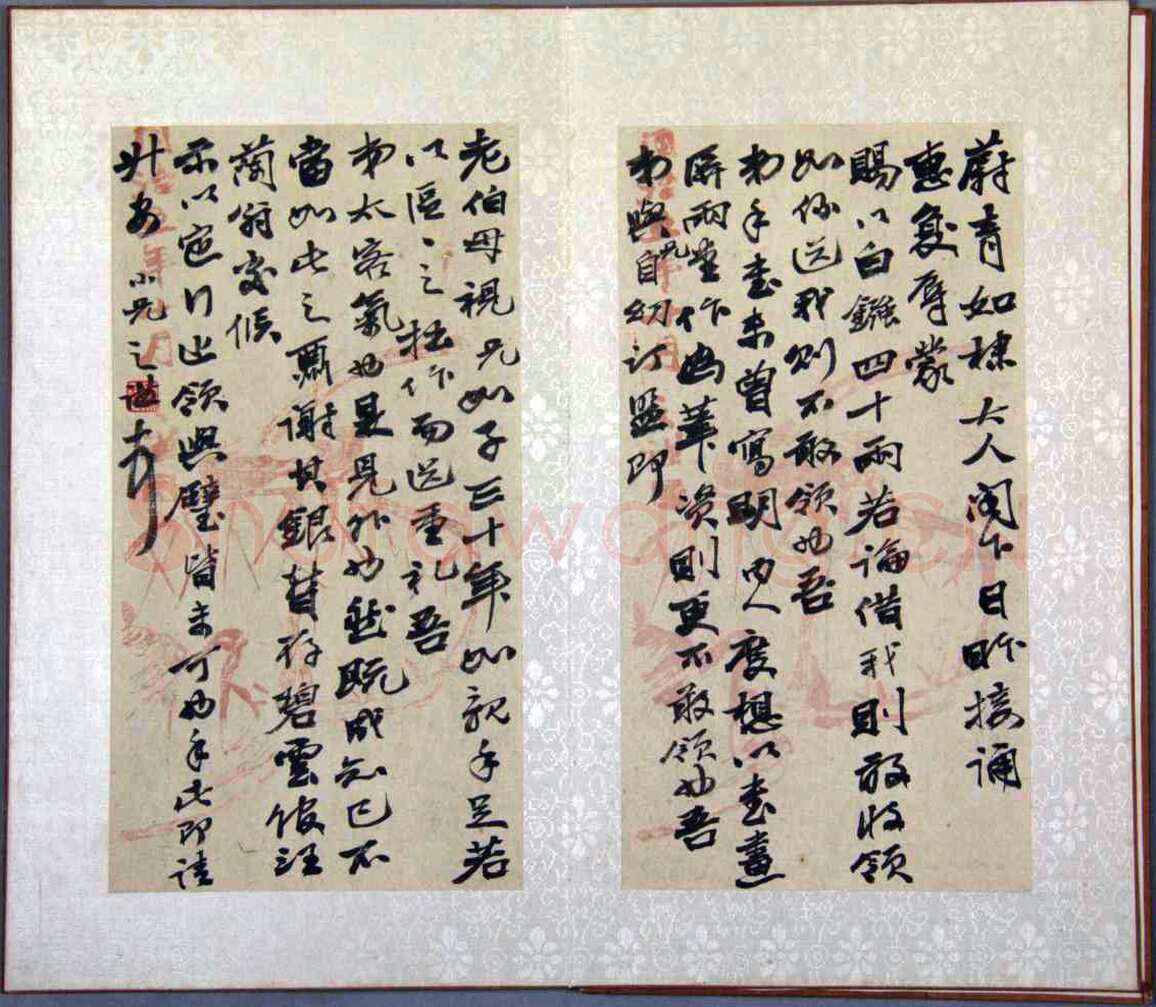 蔚青如棣大人阁下日昨接诵
惠复辱蒙
赐以白镪四十两若论借我则敢收领
如系送我则不敢领也吾
弟手书未曾写明内人度想以书画
屏两堂作为笔资则更不敢领也吾
弟与兄自幼订盟即
老伯母视兄如子三十年如亲手足若
以区々之拙作而送重礼吾
弟太客气也是见外也然既成知己不
当如此之
谢其银暂存碧云馆汪
兰翁处候
示以定行止领与璧皆未可也手此即请
升安 小兄之